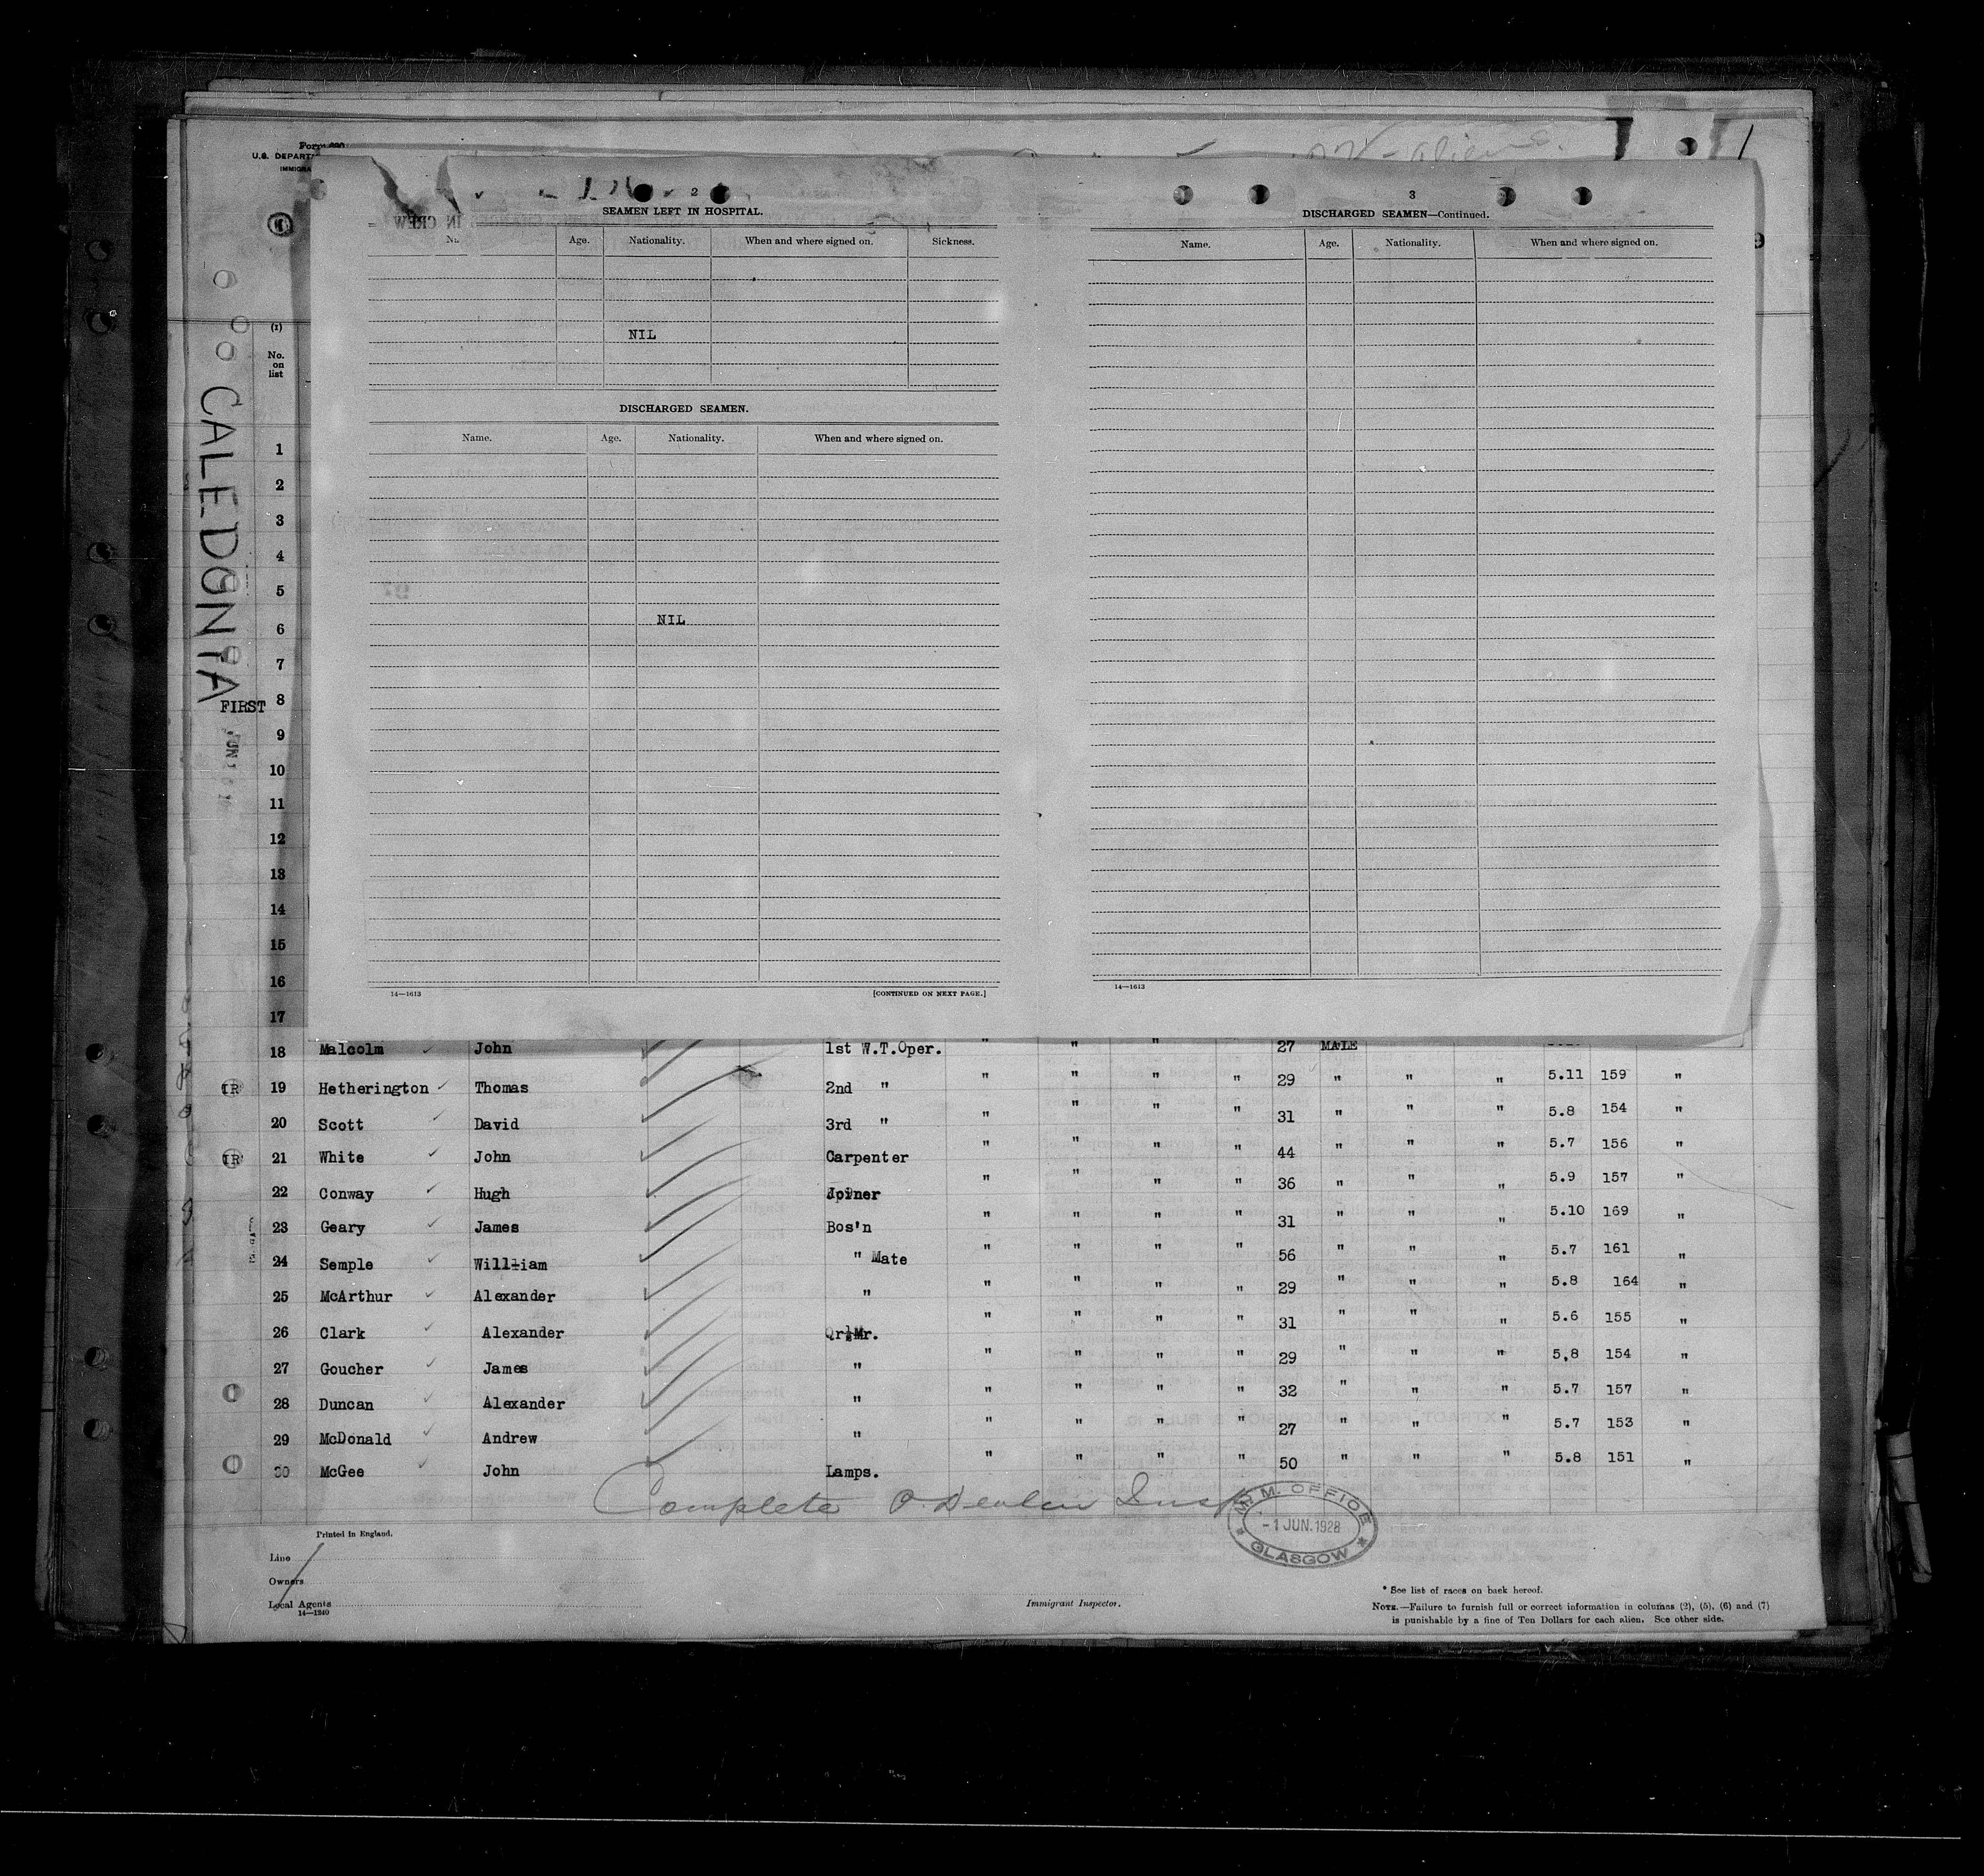 U.S. DEPART
IMMIGRA
aliens.
2
SEAMEN LEFT IN HOSPITAL.
Age. Nationality. When and where signed on. Sickness.
NIL
DISCHARGED SEAMEN.
Name. Age. Nationality. When and where signed on.
NIL
14—1613 [CONTINUED ON NEXT PAGE.]
3
DISCHARGED SEAMEN—Continued.
Name. Age. Nationality. When and where signed on.
14—1613
CALEDONIA
FIRST
(1)
No.
on
list
1
2
3
4
5
6
7
8
9
10
11
12
13
14
15
16
17
18 Malcolm John 1st W.T.Oper. " " " 27 MALE
IR 19 Hetherington Thomas 2nd " " " " " 29 " " " 5.11 159 "
20 Scott David 3rd " " " " " 31 " " " 5.8 154 "
IR 21 White John Carpenter " " " " 44 " " " 5.7 156 "
22 Conway Hugh Joiner " " " " 36 " " " 5.9 157 "
23 Geary James Bos'n " " " " 31 " " " 5.10 169 "
24 Semple William " Mate " " " " 56 " " " 5.7 161 "
25 McArthur Alexander " " " " " 29 " " " 5.8 164 "
26 Clark Alexander Qr.Mr. " " " " 31 " " " 5.6 155 "
27 Goucher James " " " " " 29 " " " 5.8 154 "
28 Duncan Alexander " " " " " 32 " " " 5.7 157 "
29 McDonald Andrew " " " " " 27 " " " 5.7 153 "
30 McGee John Lamps. " " " " 50 " " " 5.8 151 "
Complete
M. M. OFFICE
-1 JUN.1928
GLASGOW
Printed in England.
Line
Owners
Local Agents
14—1240
Immigrant Inspector.
* See list of races on back hereof.
NOTE.—Failure to furnish full or correct information in columns (2), (5), (6) and (7)
is punishable by a fine of Ten Dollars for each alien. See other side.